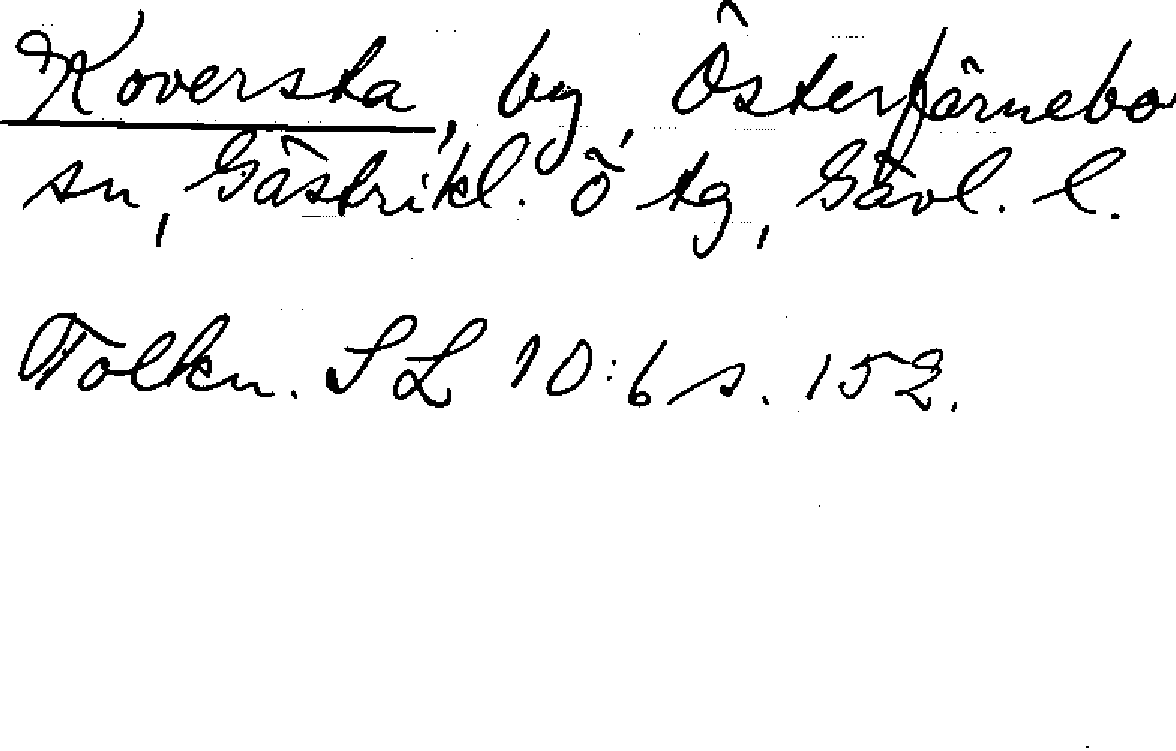 Koversta, by, Österfärnebo
sn, Gästrikl. Ö tg, Gävl. l.
Tolkn. SL 10:6 s. 152.